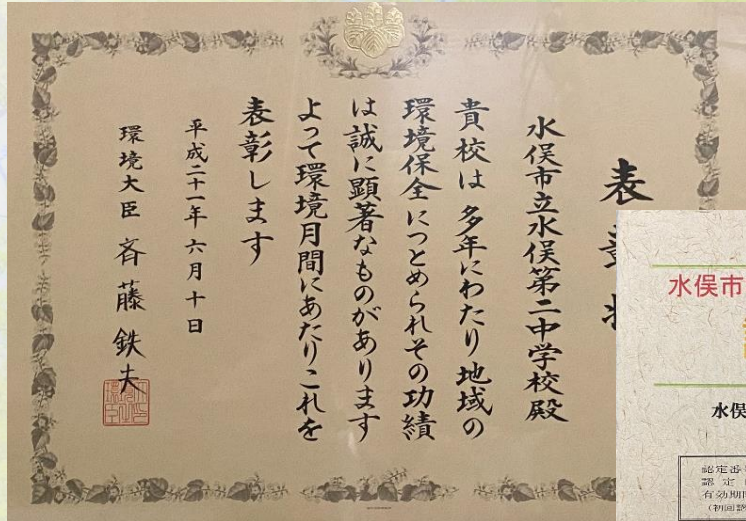 表彰状
水俣市立水俣第二中学校殿
貴校は多年にわたり地域の
環境保全につとめられその功績
は誠に顕著なものがあります
よって環境月間にあたりこれを
表彰します
平成二十一年六月十日
環境大臣 斉藤鉄夫
水俣市
水俣
認定番
認定
有効期